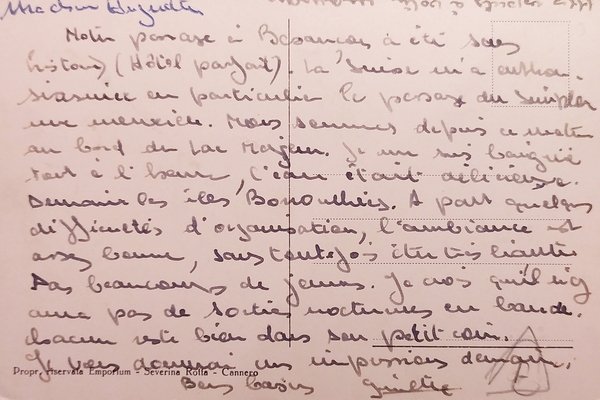 Notre passage à Besançon a été sans
histoire (Hôtel parfait). La Suisse m'a enthou-
siasmée en particulier le passage du Simplon
une merveille. Nous sommes depuis ce matin
au bord du Lac Majeur. Je me suis baignée
tout à l'heure, l'eau était délicieuse.
Demain les îles Borromées. A part quelques
difficultés d'organisation, l'ambiance est
assez bonne, sans toutefois être très liante
Pas beaucoup de jeunes. Je crois qu'il n'y
aura pas de sorties nocturnes en bande.
chacun reste bien dans son petit coin.
Je vous donnerai mes impressions demain.
Bons baisers Ginette
Propr. riservata Emporium - Severina Rolla - Cannero